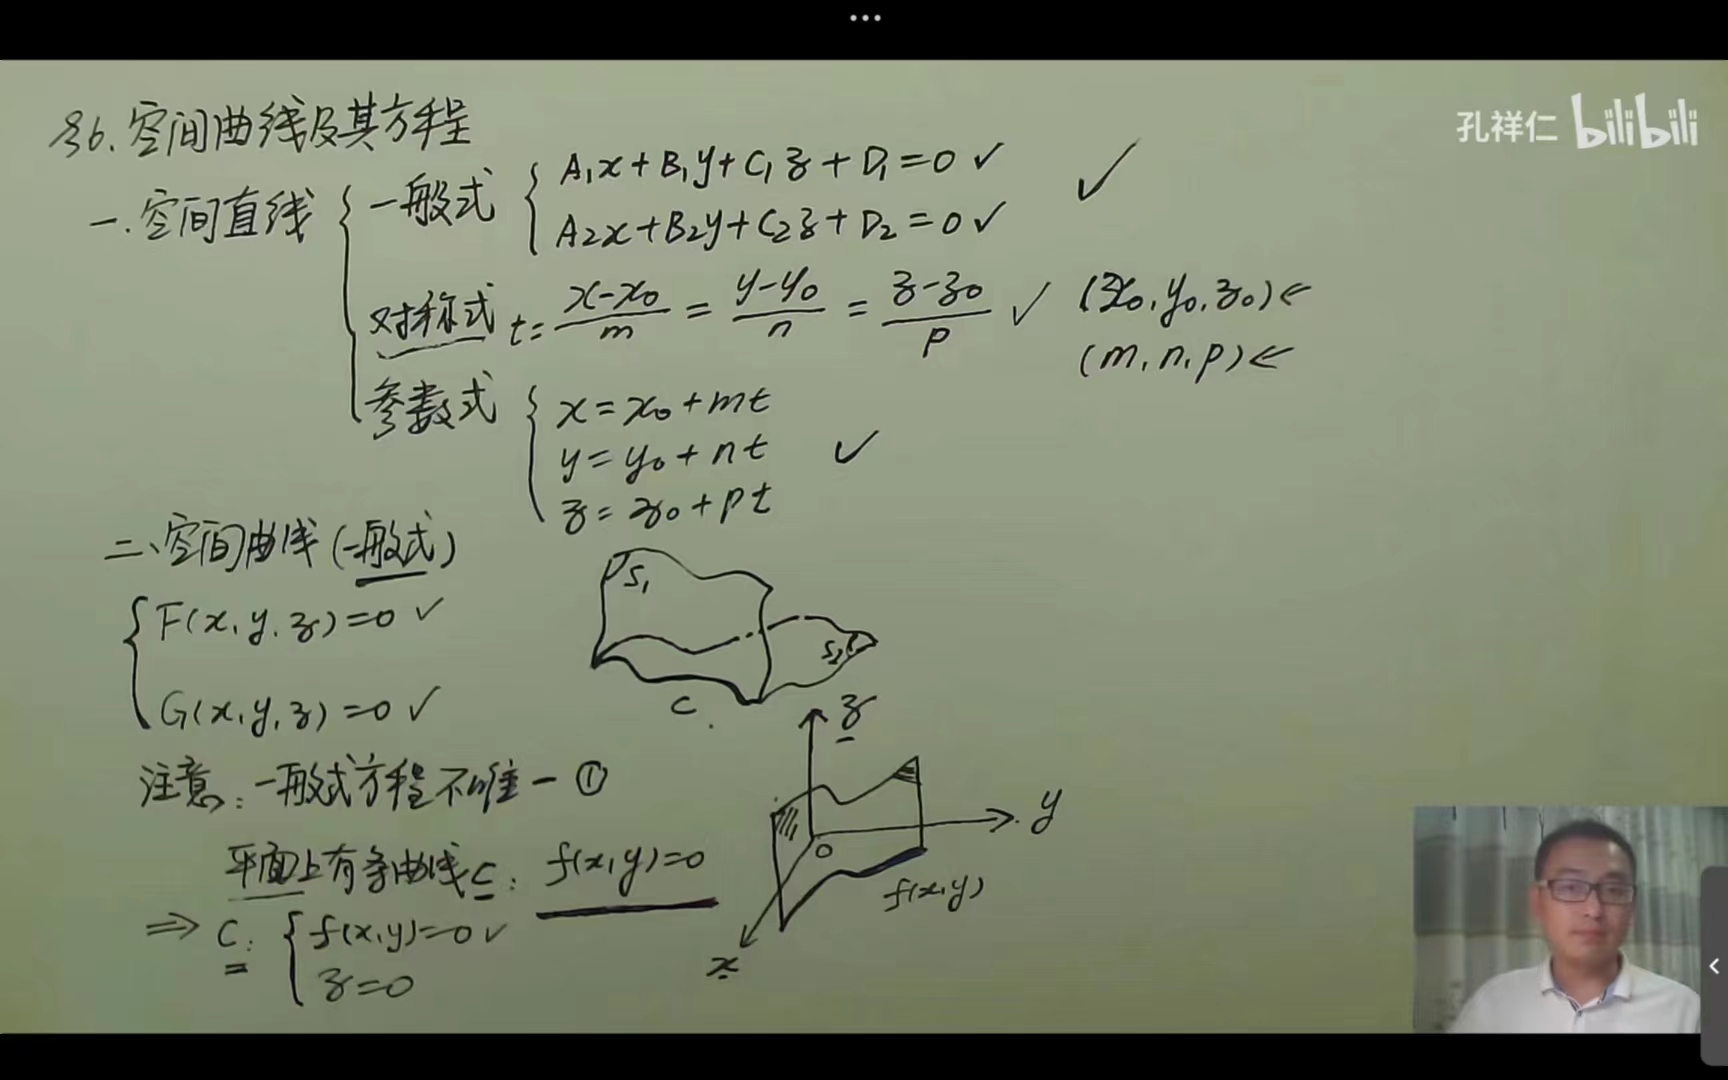 §6. 空间曲线及其方程
孔祥仁 bilibili
一. 空间直线
一般式 { A₁x+B₁y+C₁z+D₁=0 ✓ ✓
A₂x+B₂y+C₂z+D₂=0 ✓
对称式 t= (x-x₀)/m = (y-y₀)/n = (z-z₀)/p ✓ (x₀,y₀,z₀)←
(m,n,p)←
参数式 { x=x₀+mt
y=y₀+nt ✓
z=z₀+pt
二、空间曲线(一般式)
{ F(x,y,z)=0 ✓
G(x,y,z)=0 ✓
S₁
S₂
C
注意: 一般式方程不唯一 ①
平面上有条曲线C: f(x,y)=0
⇒ C: { f(x,y)=0 ✓
z=0
z
y
O
f(x,y)
x